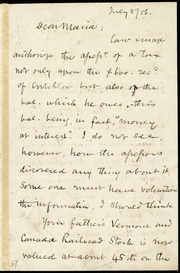 July 8/56.
Dear Maria,
Law & usage
authorize the apors't of a Tax
not only upon the $600. rec'd
of but also of the
bal. which he owes, this
bal. being in fact, "money
at interest." I do not see
however, how the assessors
discovered any thing about it.
Some one must have volunteered
the information. I should think
Your father's Vermont and
Canada Railroad Stock is now
valued at about 45 dls on the